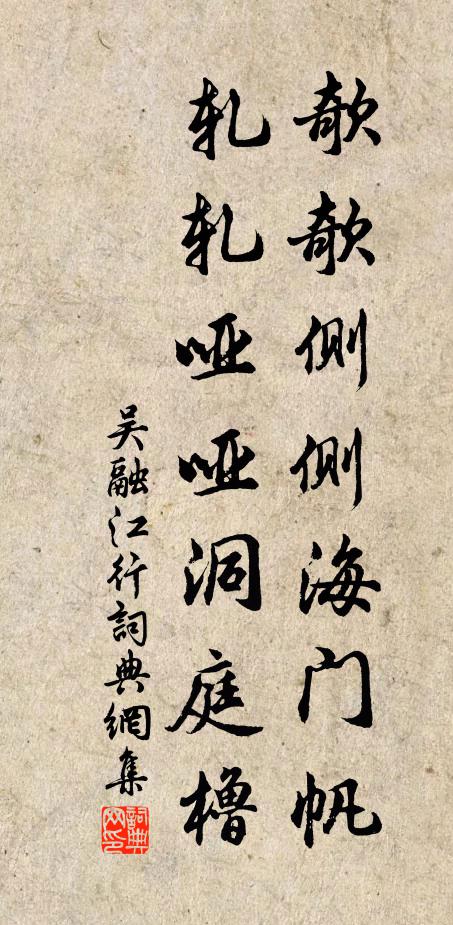 欹欹侧侧海门帆
轧轧哑哑洞庭橹
吴融江行詞典網集
詞典
网印